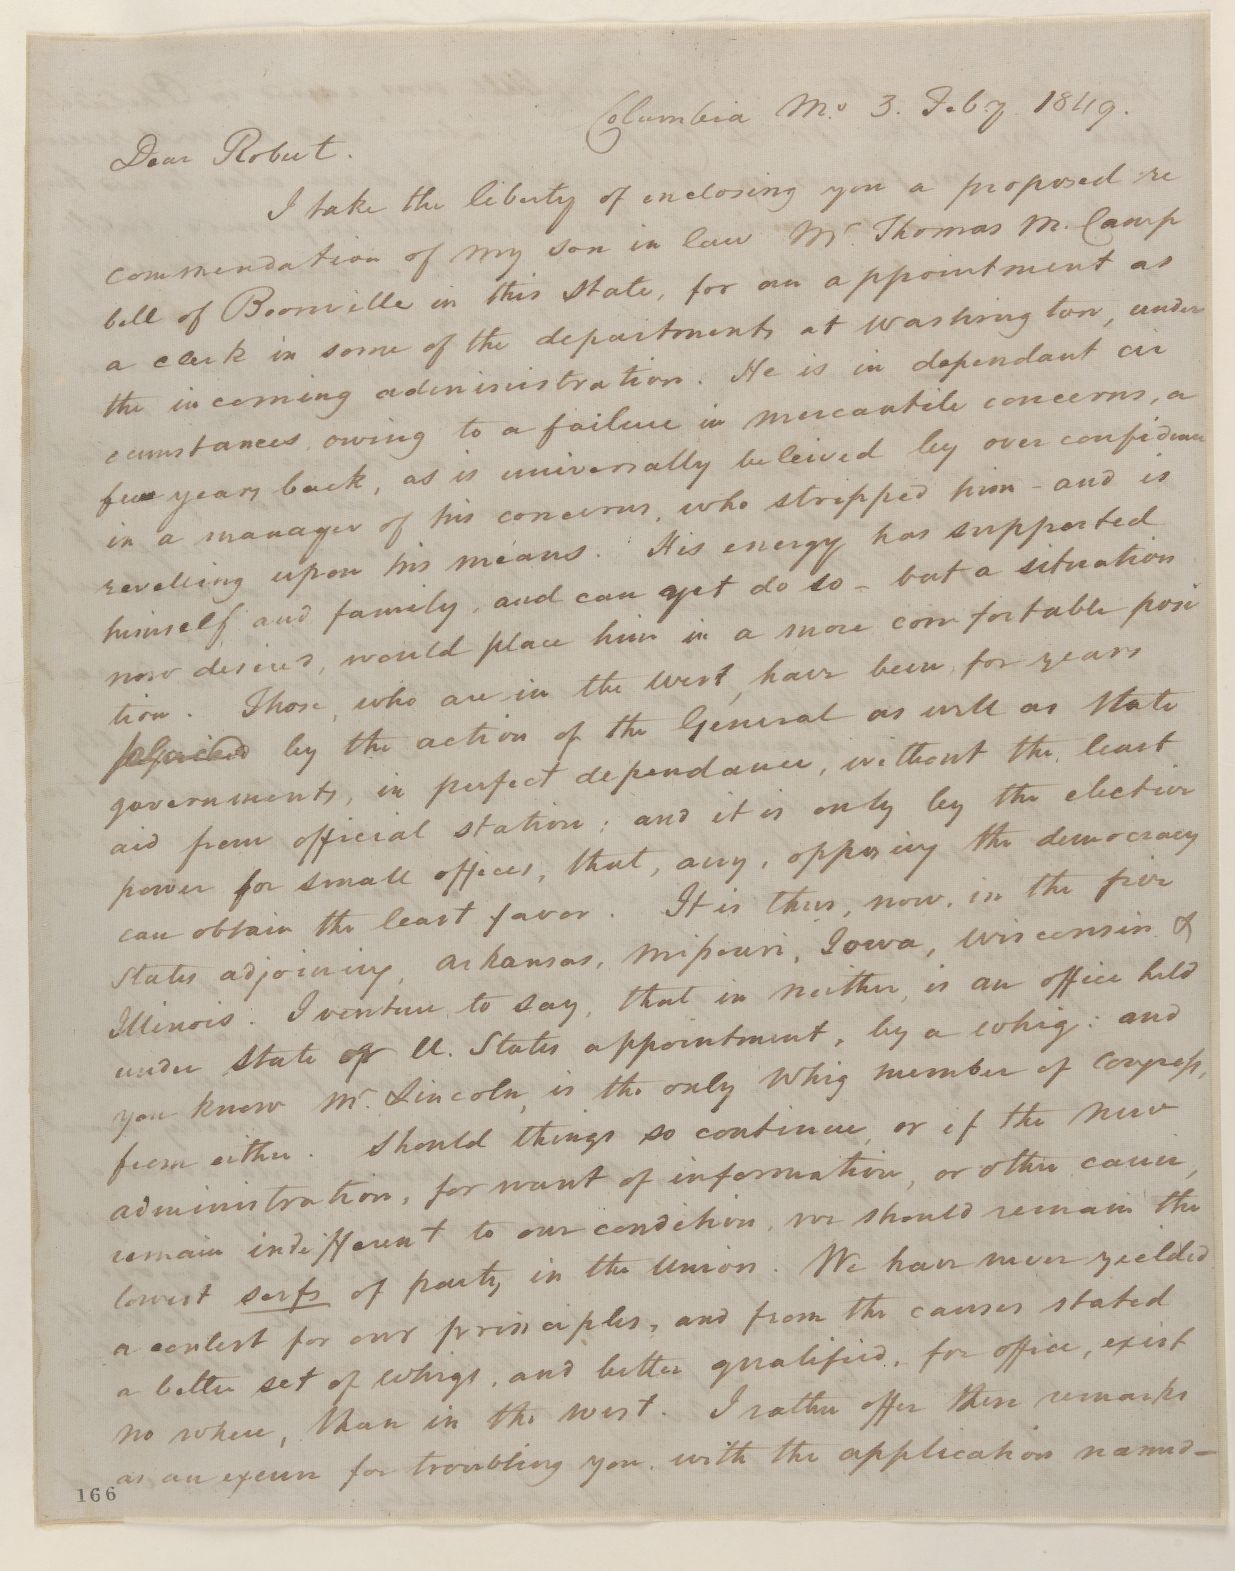 Columbia Mo. 3. Feby. 1849.
Dear Robert.
I take the liberty of enclosing you a proposed re
commendation of my son in law Mr. Thomas M. Camp
bell of Boonville in this State, for an appointment as
a clerk in some of the departments at Washington, under
the incoming administration. He is in dependant cir
cumstances owing to a failure in mercantile concerns, a
few years back, as is universally beleived by over confidence
in a manager of his concerns, who stripped him - and is
revelling upon his means. His energy has supported
himself and family, and can yet do so - but a situation
now desired, would place him in a more comfortable posi
tion. Those, who are in the west, have been for years
by the action of the General as well as State
governments, in perfect dependance, without the least
aid from official station; and it is only by the elective
power for small offices, that, any, opposing the democracy
can obtain the least favor. It is thus, now, in the five
States adjoining, Arkansas, Missouri, Iowa, Wisconsin &
Illinois. I venture to say, that in neither, is an office held
under State or U. States appointment, by a whig: and
you know Mr. Lincoln, is the only Whig member of Congress,
from either. Should things so continue, or if the new
administration, for want of information, or other cause,
remain indifferent to our condition, we should remain the
lowest serfs of party in the Union. We have never yielded
a contest for our principles, and from the causes stated
a better set of Whigs, and better qualified, for office, exist
no where, than in the west. I rather offer these remarks
as an excuse for troubling you, with the application named-
166